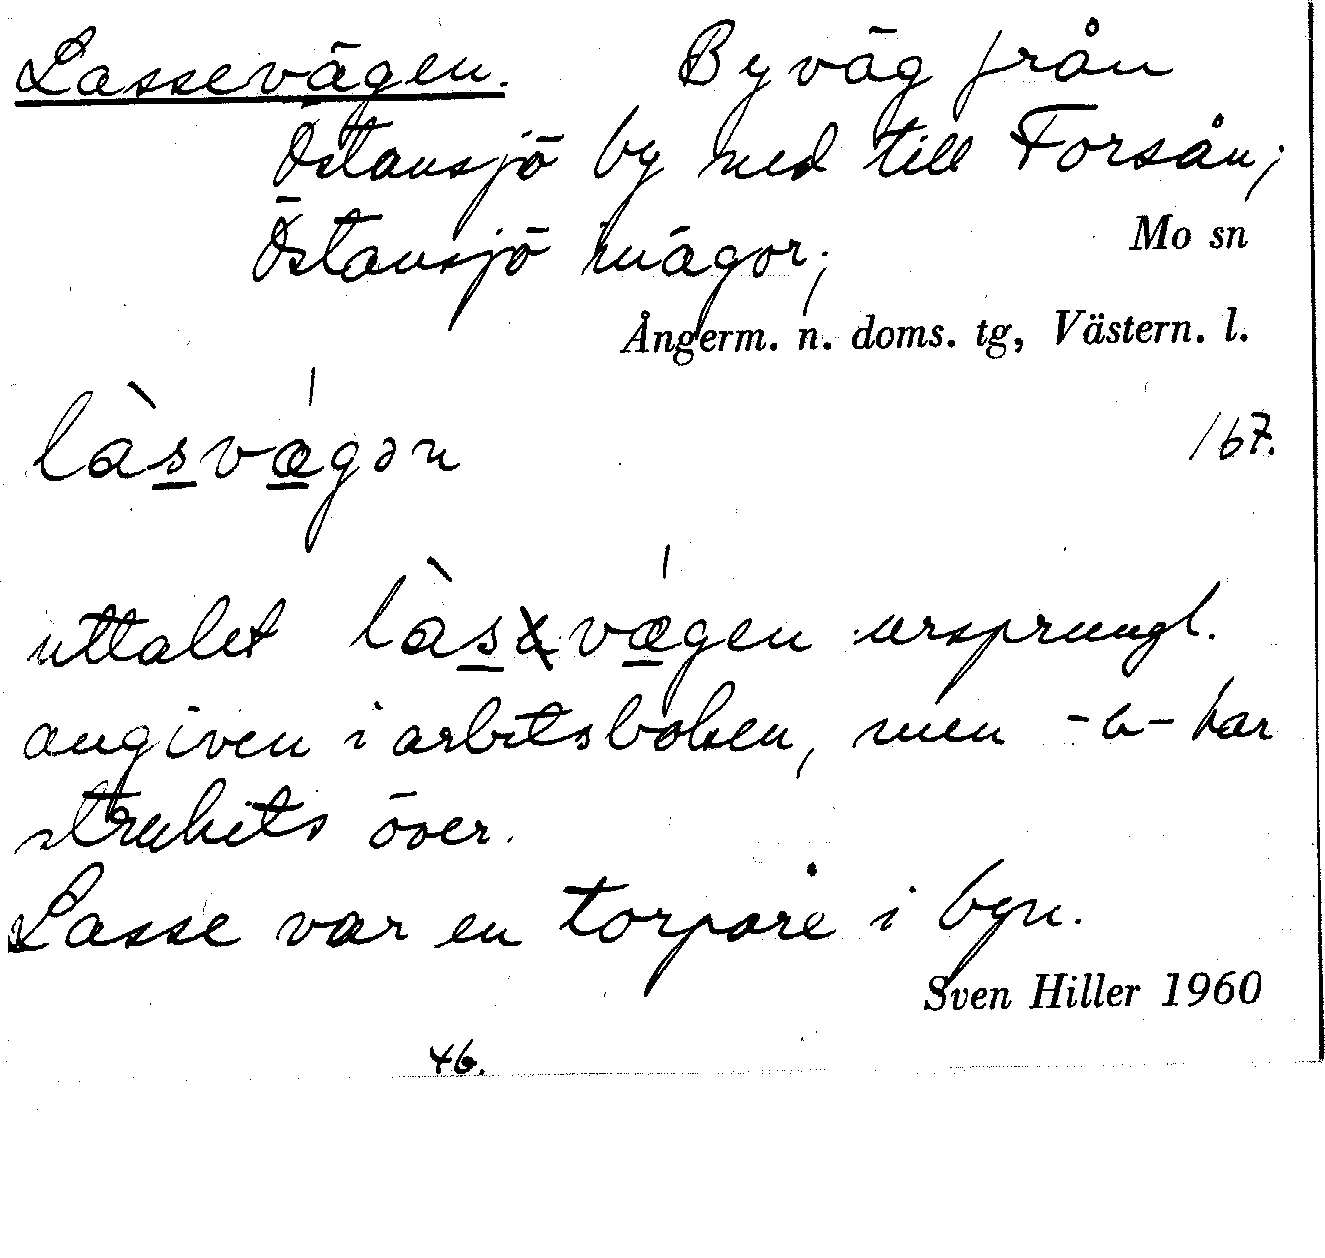 Lassevägen. Byväg från
Östansjö by ned till Forsån;
Östansjö inägor; Mo sn
Ångerm. n. doms. tg, Västern. l.
làsvǽgən /67.
uttalet làsvægen ursprungl.
angiven i arbetsboken, men -a- har
strukits över.
Lasse var en torpare i byn.
Sven Hiller 1960
46.